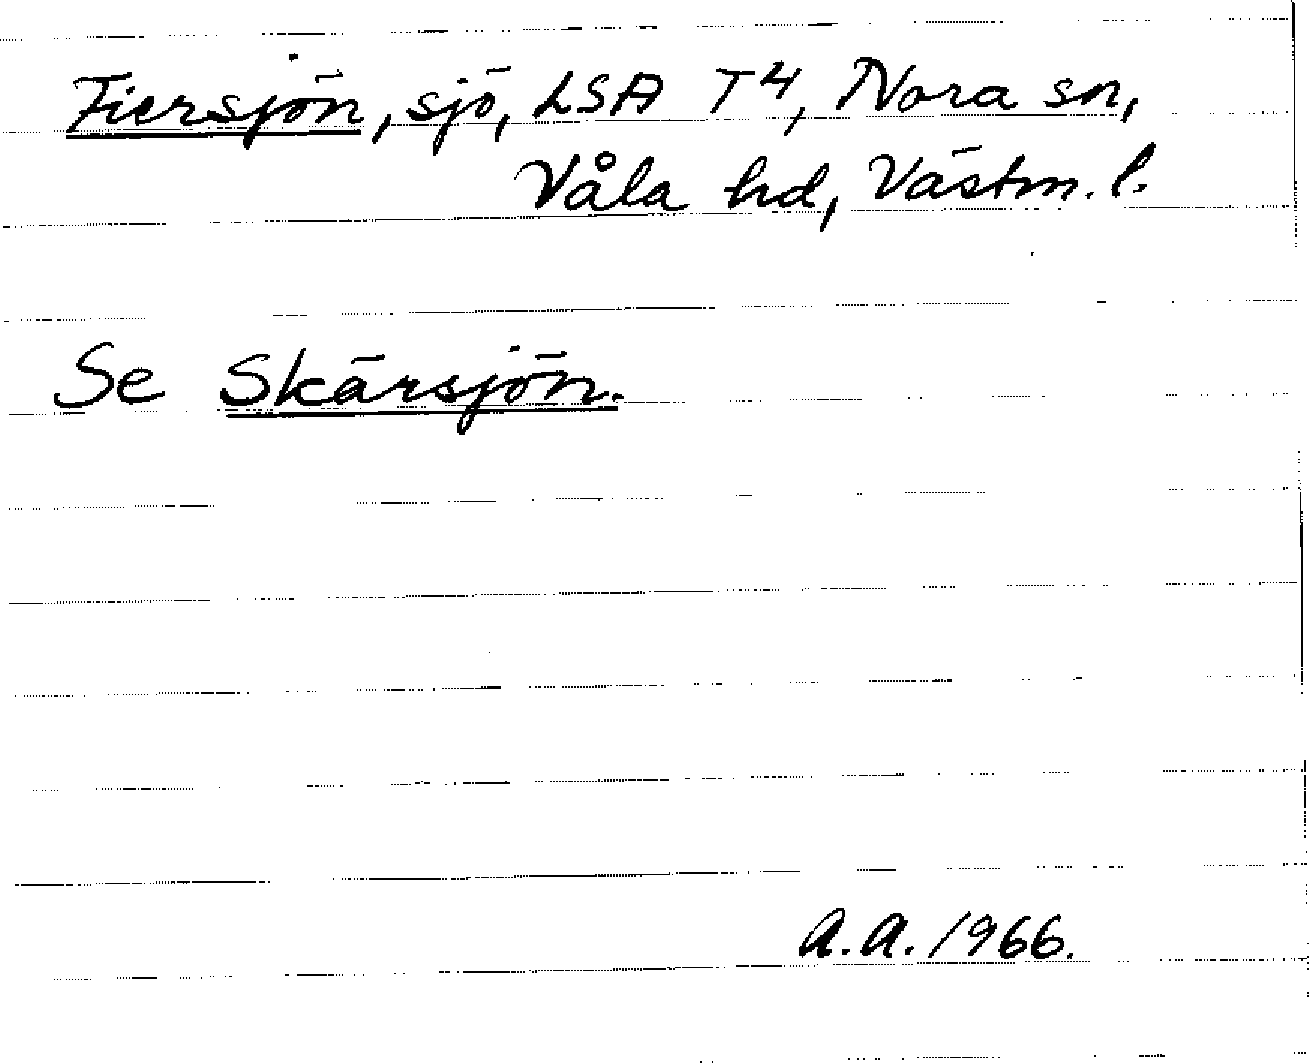 Fiersjön, sjö, LSA T4, Nora sn,
Våla hd, Västm. l.
Se Skärsjön.
A.A. 1966.